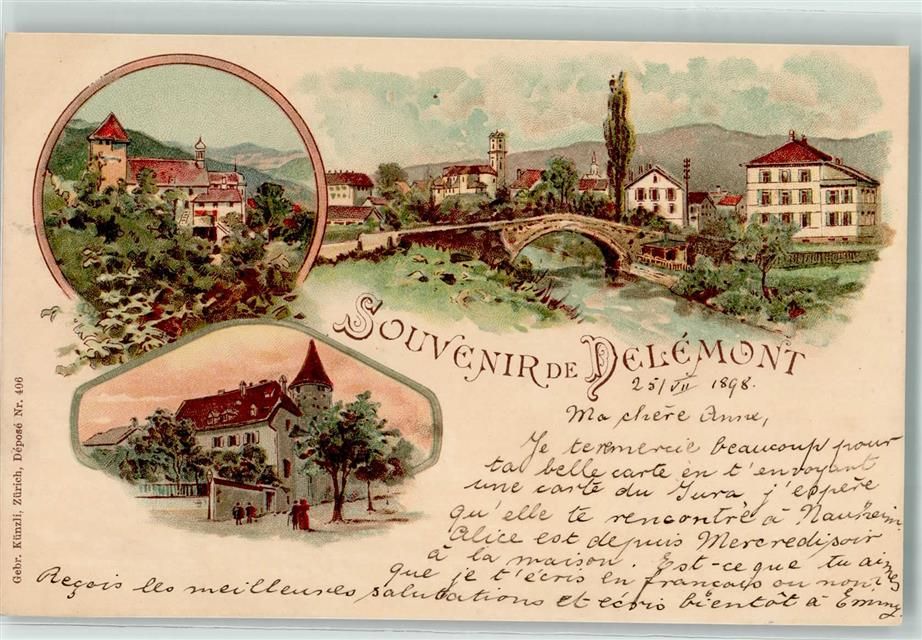 SOUVENIR DE DELÉMONT
25/VII 1898.
Ma chère Anne,
Je termercie beaucoup pour
ta belle carte en t'envoyant
une carte du Jura j'eppère
qu'elle te rencontre à Nauheim.
Alice est depuis Mercredisoir
à la maison. Est-ce que tu aimes
que je t'écris en français ou non?
Reçois les meilleures salutations et écris bientôt à Emmy.
Gebr. Künzli, Zürich, Déposé Nr. 406